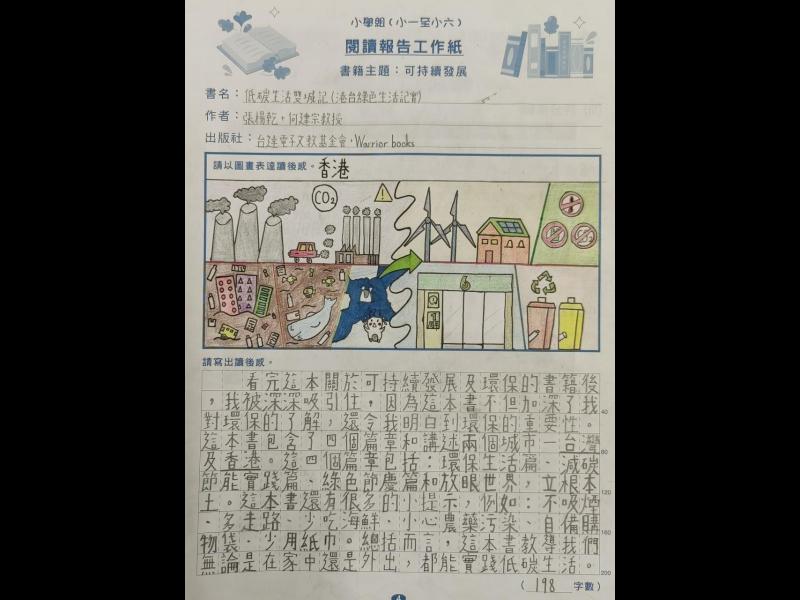 小學組（小一至小六）
閱讀報告工作紙
書籍主題：可持續發展
書名：低碳生活雙城記(港台綠色生活記實)
作者：張楊乾，何建宗教授
出版社：台達電子文教基金會，Warrior books
請以圖畫表達讀後感。香港
CO2
請寫出讀後感。
看完這本關於可持續發展及環保的書籍後
，我被深深吸引住，因為這本書不但加深了我
對環保的了解，還令我明白到環保的重要性。
這本書包含了四個篇章和講述兩個城市—台灣
及香港。這四個篇章包括：環保生活篇、減碳
節能實踐篇、綠色節慶篇和放眼世界，立根本
土。這本書還有很多的小提示，例如：不吸煙
、多走路、少吃海鮮、小心農藥污染、自備購
物袋、少用紙巾。總括而言，這本書教導我們
無論是在家中還是外出，都能實踐低碳生活。
40
80
120
160
200
（198字數）